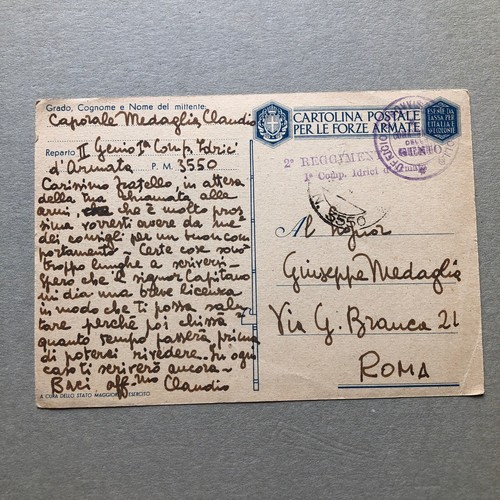 Grado, Cognome e Nome del mittente
Caporale Medaglia Claudio
Reparto II Genio 1ª Comp. Idrici
d'Armata P. M. 3550
Carissimo fratello, in attesa
della tua chiamata alle
armi, che è molto pros
sima vorresti avere da me
dei consigli per un buon com
portamento. Certe cose sono
troppo lunghe a scriversi.
Spero che il signor Capitano
mi dia una breve licenza
in modo che ti possa salu
tare perchè poi chissà
quanto tempo passerà prima
di poterci rivedere. In ogni
caso ti scriverò ancora -
Baci aff.mo Claudio
A CURA DELLO STATO MAGGIORE R. ESERCITO
CARTOLINA POSTALE
PER LE FORZE ARMATE
ESENTE DA
TASSA PER
L'ITALIA
2° REGGIMENTO GENIO
1ª Comp. Idrici d'Armata
3550
Al Signor
Giuseppe Medaglia
Via G. Branca 21
ROMA